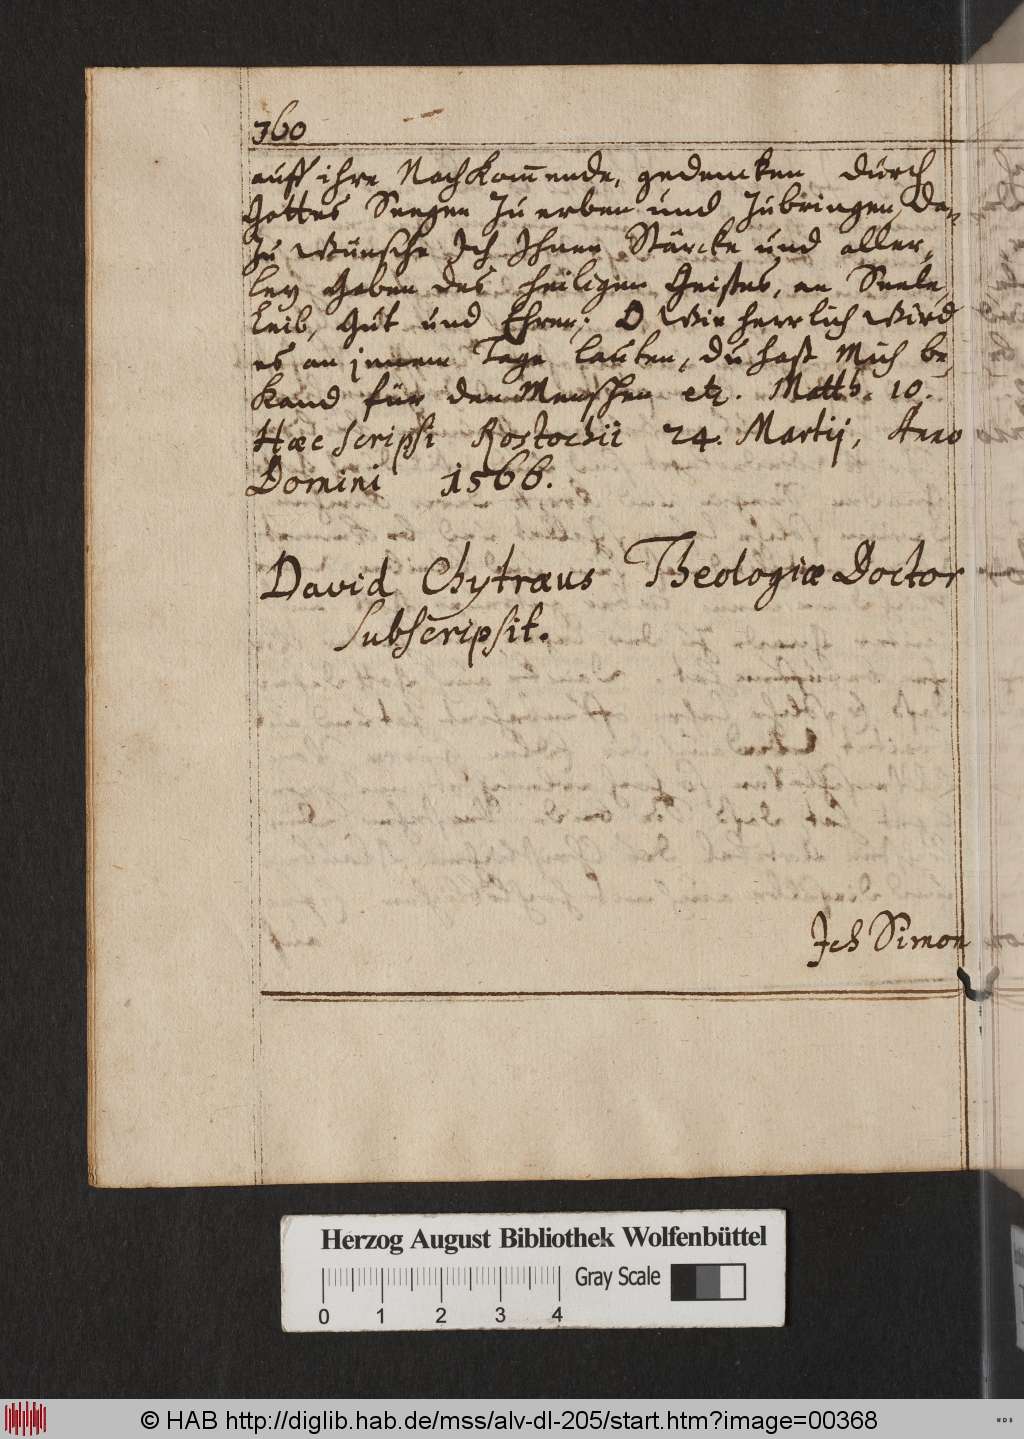 360
auff ihre Nachkom̄ende, gedencken durch
Gottes Seegen zu erben und zubringen, Da-
zu wünsche Ich Ihnen Stärcke und aller,
ley Gaben des heiligen Geistes, an Seele,
Leib, Gut und Ehren; O wie herrlich wird
es an jenem Tage lauten, du hast Mich be,
kand für den Menschen etc. Matth. 10.
Hæc scripsi Rostochii 24. Martij, Anno
Domini 1566.
David Chytræus Theologiæ Doctor
subscripsit.
Ich Simon
Herzog August Bibliothek Wolfenbüttel
Gray Scale
0 1 2 3 4
© HAB http://diglib.hab.de/mss/alv-dl-205/start.htm?image=00368